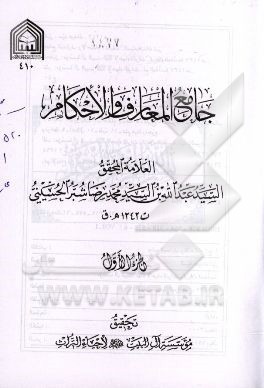 ٤١٠
جامع المعارف والأحكام
العلامة المحقق
السيد عبد الله بن السيد محمد رضا شبر الحسيني
ت ١٢٤٢ هـ. ق
الجزء الأول
تحقيق
مؤسسة آل البيت لإحياء التراث